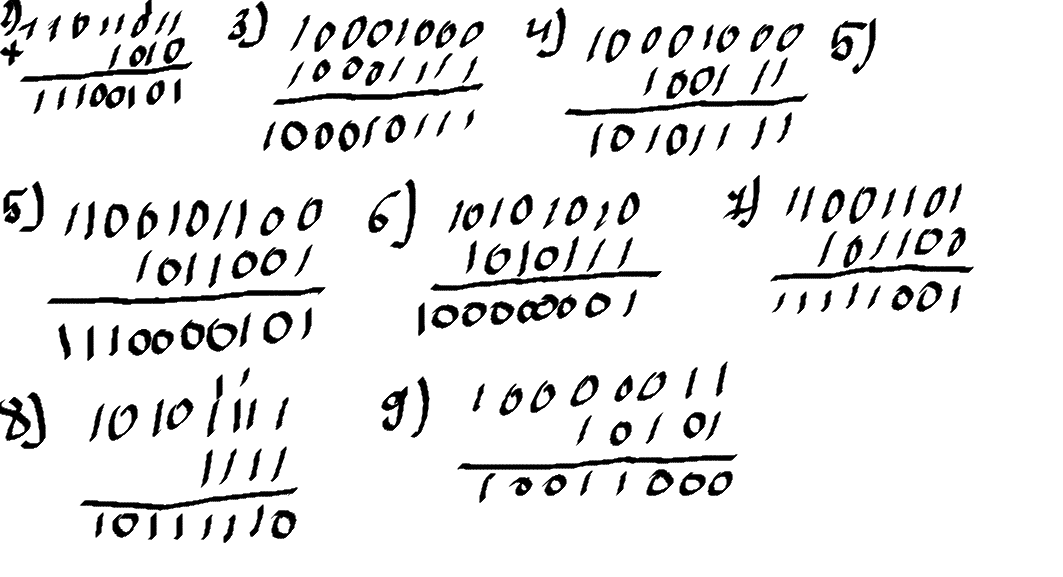 2) 11011011 3) 10001000 4) 10001000 5)
+ 1010 10001111 100111
11100101 100010111 10101111
5) 1100101100 6) 10101010 7) 11001101
1011001 1010111 101100
1110000101 100000001 11111001
11
8) 10101111 9) 10000011
1111 10101
10111110 10011000